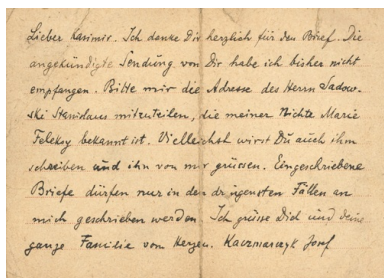 Lieber Kasimir. Ich danke Dir herzlich für den Brief. Die
angekündigte Sendung von Dir habe ich bisher nicht
empfangen. Bitte mir die Adresse des Herrn Sadow-
ski Stanislaus mitzuteilen, die meiner Nichte Marie
Feleksy bekannt ist. Vielleicht wirst Du auch ihm
schreiben und ihn von mir grüssen. Eingeschriebene
Briefe dürfen nur in den dringensten Fällen an
mich geschrieben werden. Ich grüsse Dich und deine
ganze Familie vom Herzen. Kaczmarczyk Josef